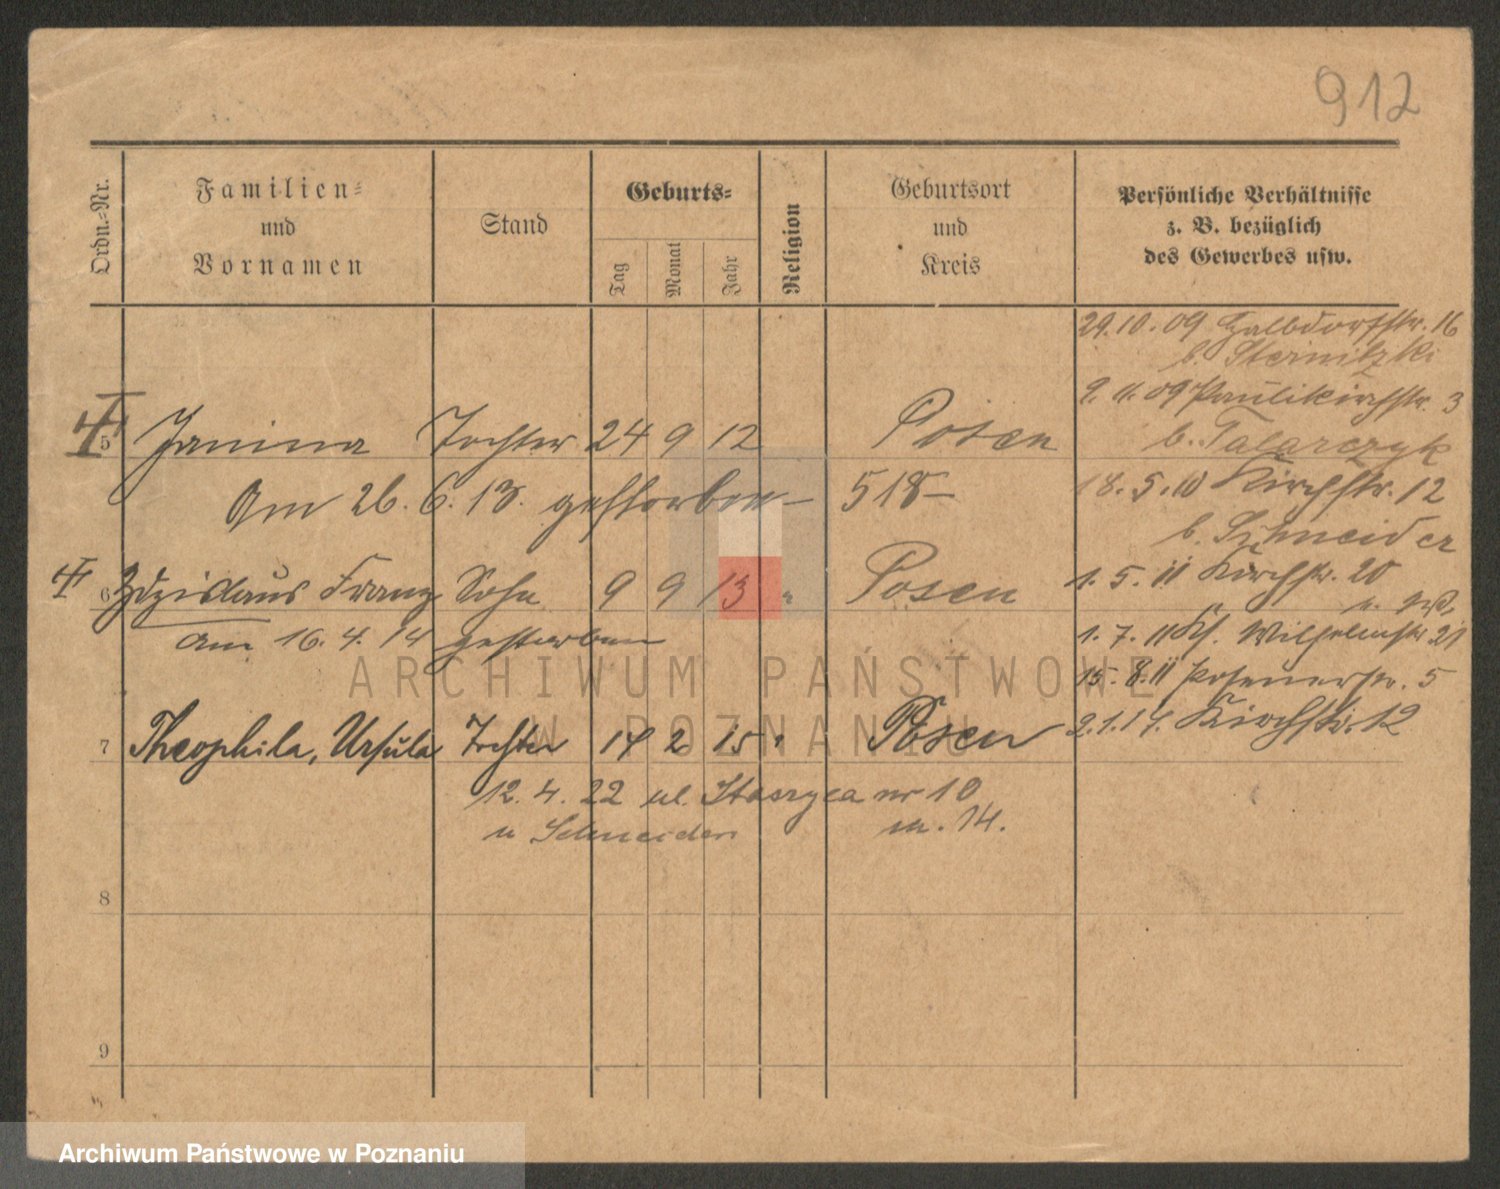 912
Ordn.-Nr.
Familien-
und
Vornamen
Stand
Geburts-
Tag
Monat
Jahr
Religion
Geburtsort
und
Kreis
Persönliche Verhältnisse
z. B. bezüglich
des Gewerbes usw.
29.10.09 Halbdorfstr. 16
b. Sternitzki
9.11.09 Paulikirchstr. 3
b. Talarczyk
18.5.10 Kirchstr. 12
b. Schneider
1.5.11 Kirchstr. 20
1.7.11 Wilhelmstr. 21
15.8.11 Posenerstr. 5
2.1.14. Kirchstr. 12
5 Janina Tochter 24 9 12 Posen
Am 26.6.13. gestorben – 518 –
6 Zdzislaus Franz Sohn 9 9 13 " Posen
am 16.4.14 gestorben
7 Theophila, Ursula Tochter 14 2 15 " Posen
12.4.22 ul. Staszyca nr 10
u Schneider m. 14.
8
9
ARCHIWUM PAŃSTWOWE
W POZNANIU
Archiwum Państwowe w Poznaniu